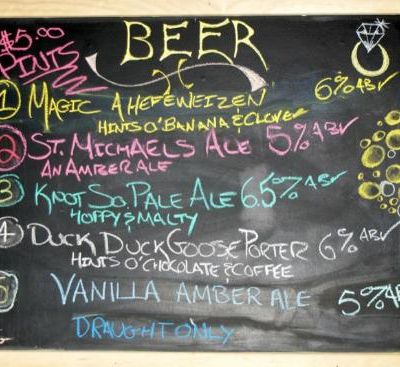 $5.00
PINTS
BEER
1 MAGIC A HEFEWEIZEN 6% ABV
HINTS O' BANANA & CLOVE
2 ST. MICHAELS ALE 5% ABV
AN AMBER ALE
3 KNOT SO PALE ALE 6.5% ABV
HOPPY & MALTY
4 DUCK DUCK GOOSE PORTER 6% ABV
HINTS O' CHOCOLATE & COFFEE
5 VANILLA AMBER ALE 5% AB
DRAUGHT ONLY